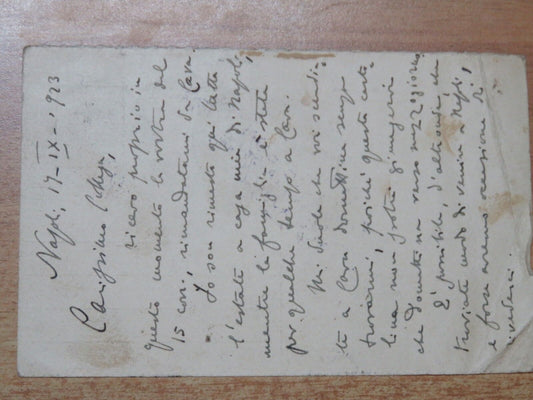 Nap., 17-IX-1923
Carissimo Collega,
ricevo proprio in
questo momento la vostra del
15 corr., rimandatami da Cava.
Io son rimasto qui tutta
l'estate a casa mia di Napoli,
mentre la famiglia è stata
per qualche tempo a Cava.
Mi duole che voi scendi-
te a Cava domattina senza
trovarmi, poiché questa carto-
lina non potrà giungervi
che domattina verso mezzogiorno.
È possibile, d'altronde che
troviate modo di venire a Nap.
e forse avremo occasione di
rivederci.